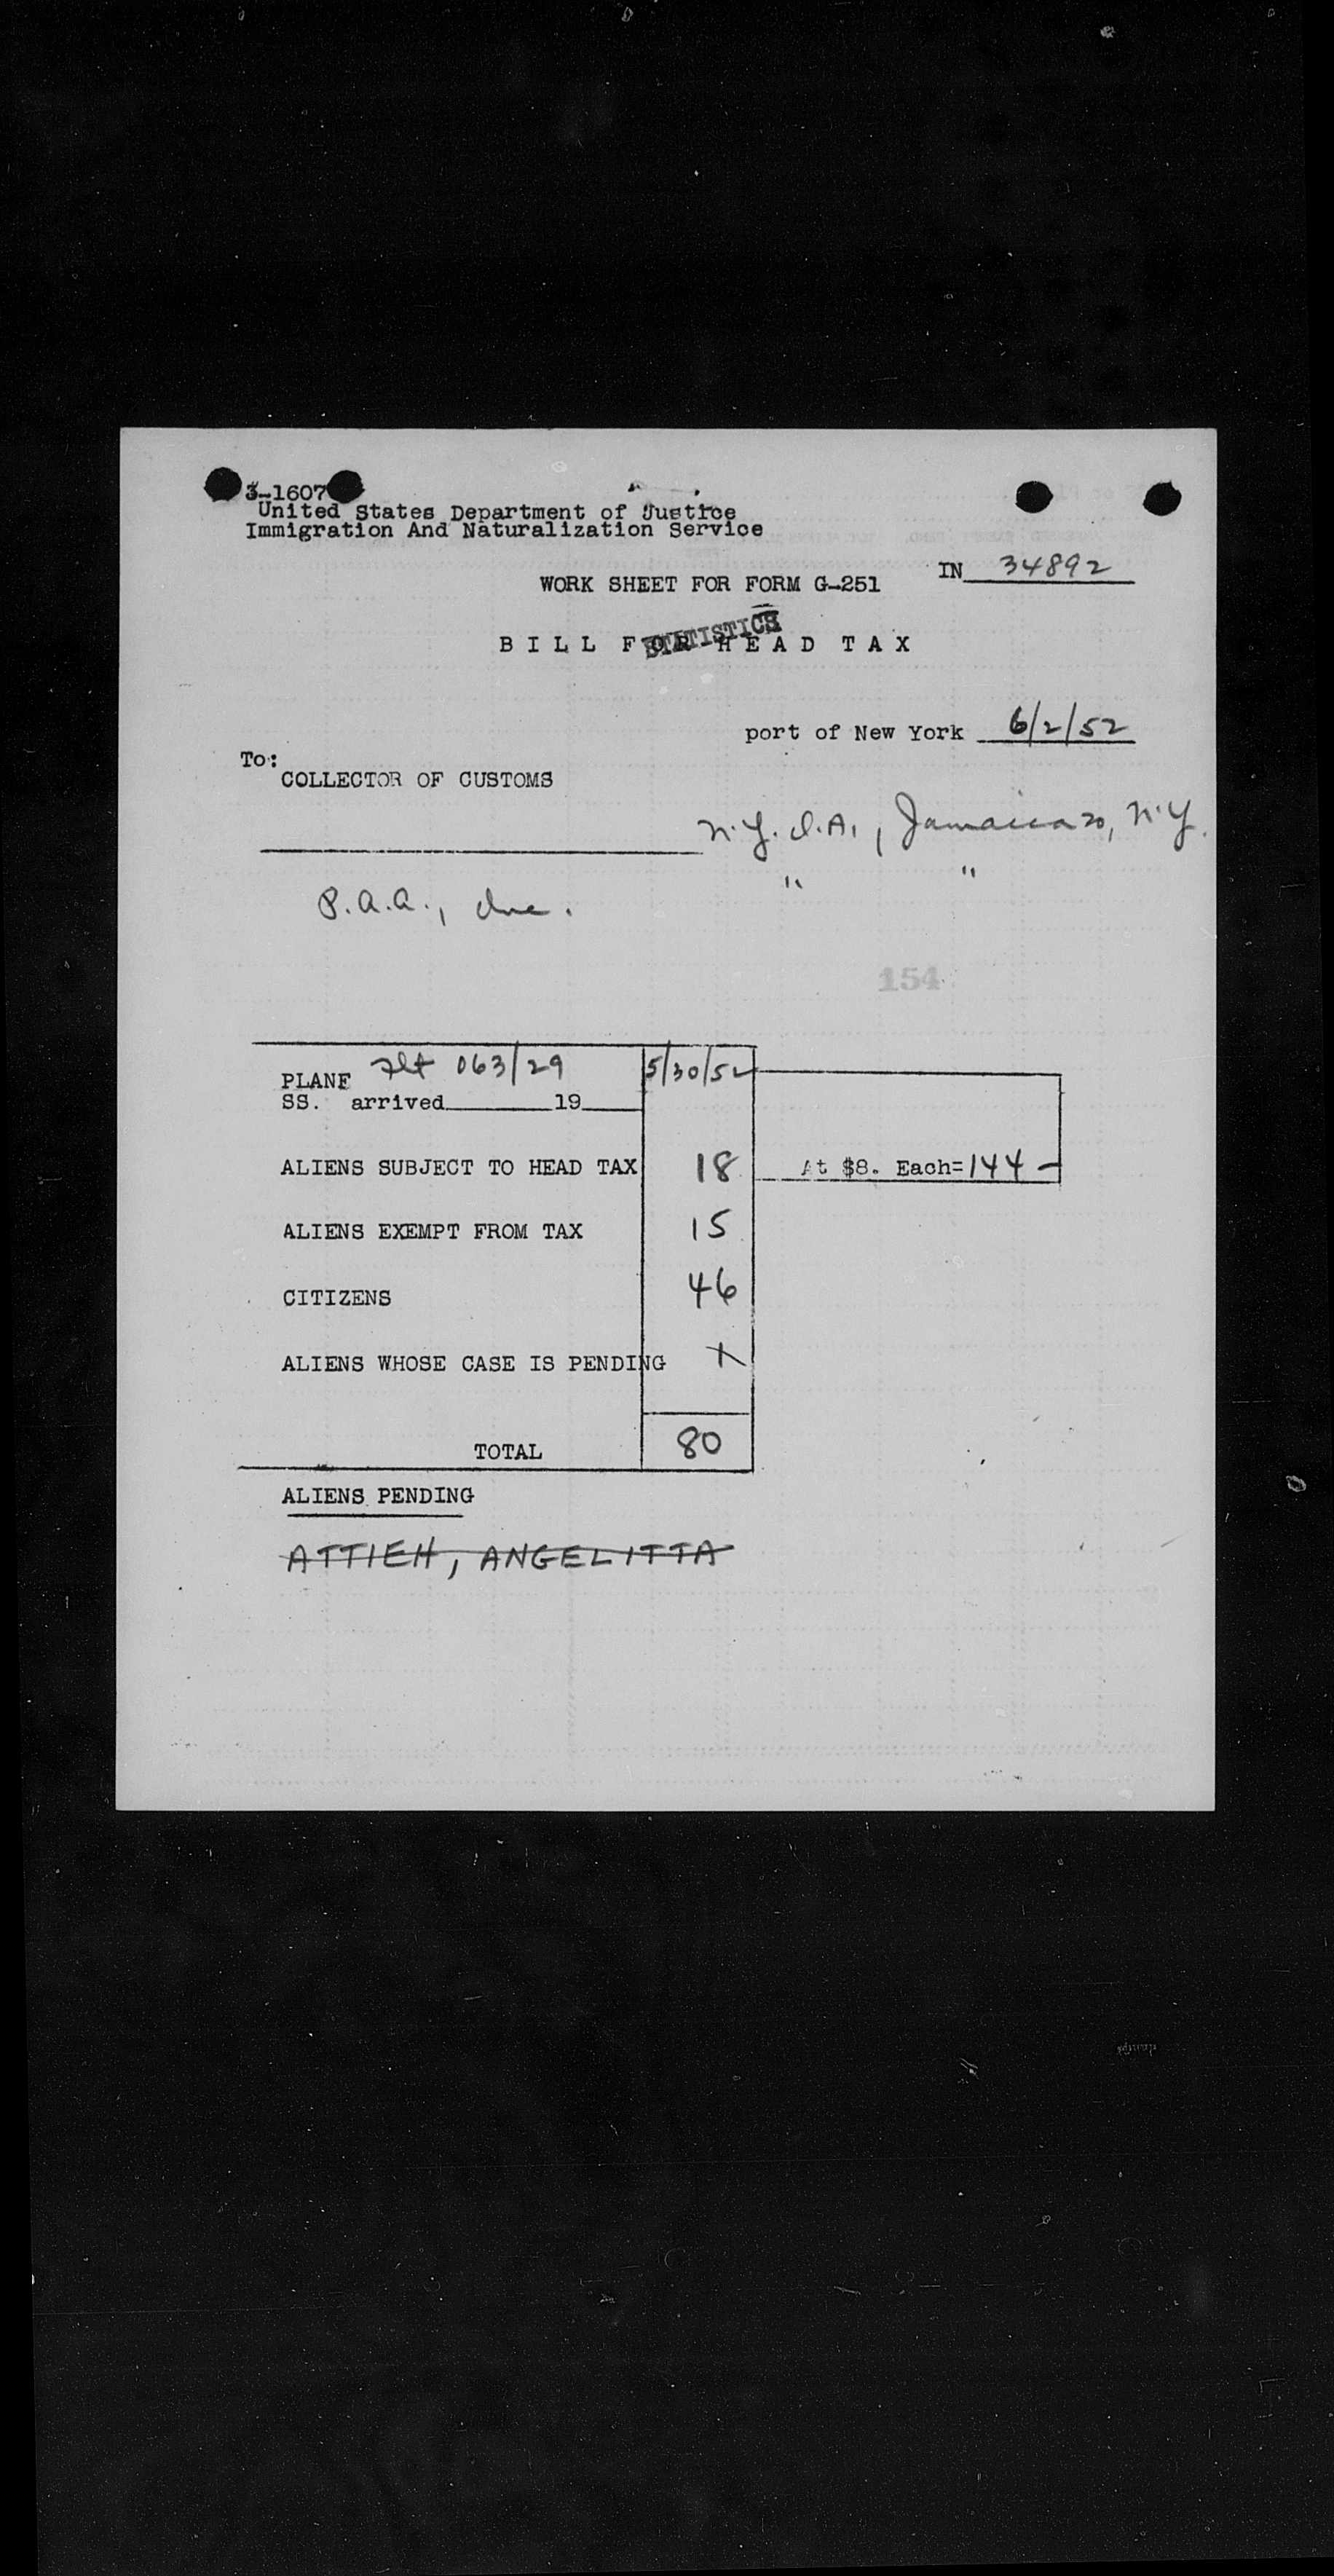 3-1607
United States Department of Justice
Immigration And Naturalization Service
IN 34892
WORK SHEET FOR FORM G-251
STATISTICS
BILL FOR HEAD TAX
port of New York 6/2/52
To:
COLLECTOR OF CUSTOMS
N.Y.I.A., Jamaica 20, N.Y.
" "
P.A.A., Inc.
154
PLANE Flt 063/29 5/30/52
SS. arrived 19
ALIENS SUBJECT TO HEAD TAX 18 At $8. Each=144 -
ALIENS EXEMPT FROM TAX 15
CITIZENS 46
ALIENS WHOSE CASE IS PENDING
TOTAL 80
ALIENS PENDING
ATTIEH, ANGELITTA